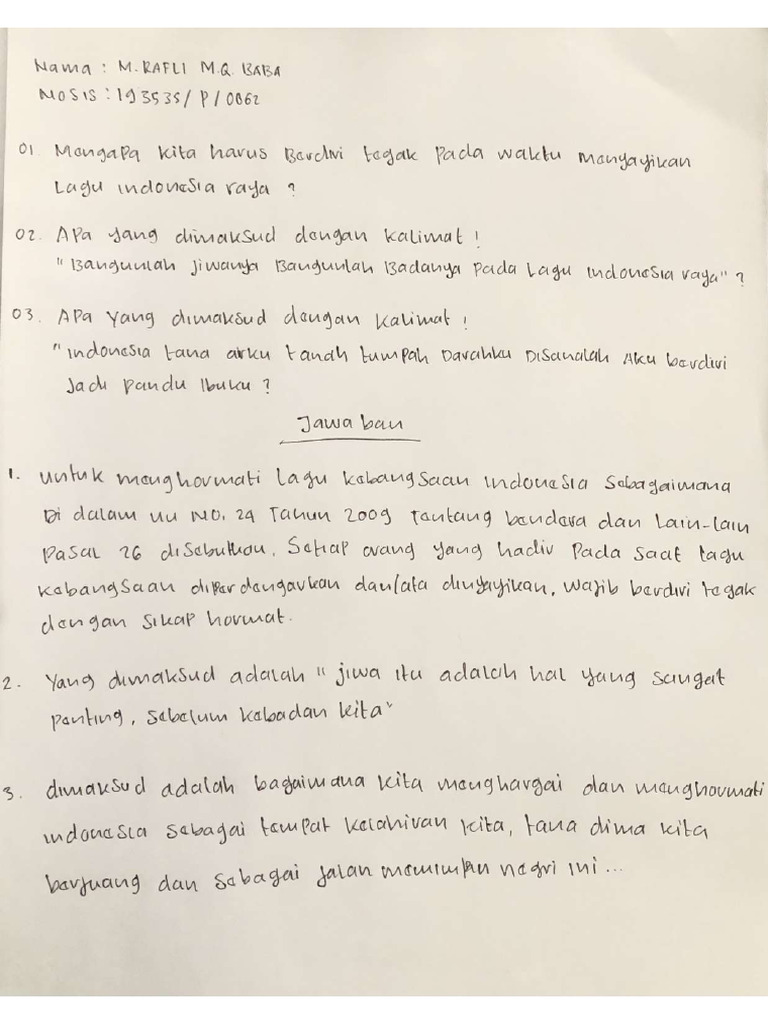 Nama : M. RAFLI M.Q. BABA
NOSIS : 193535/P/0062
01. Mengapa kita harus Berdiri tegak pada waktu menyayikan
Lagu indonesia raya ?
02. Apa yang dimaksud dengan kalimat !
"Bangunlah jiwanya Bangunlah Badanya pada Lagu indonesia raya" ?
03. Apa yang dimaksud dengan kalimat !
"indonesia tana airku tanah tumpah Darahku Disanalah Aku berdiri
Jadi pandu Ibuku ?
Jawaban
1. untuk menghormati Lagu kebangsaan indonesia sebagaimana
Di dalam uu No. 24 Tahun 2009 Tentang bendera dan Lain-lain
Pasal 26 disebutkan, Setiap orang yang hadir pada saat lagu
kebangsaan diperdengarkan dan/ata dinyayikan, wajib berdiri tegak
dengan sikap hormat.
2. Yang dimaksud adalah " jiwa itu adalah hal yang sangat
penting, sebelum kebadan kita"
3. dimaksud adalah bagaimana kita menghargai dan menghormati
indonesia sebagai tempat kelahiran kita, tana dima kita
berjuang dan sebagai jalan memimpin negri ini ...